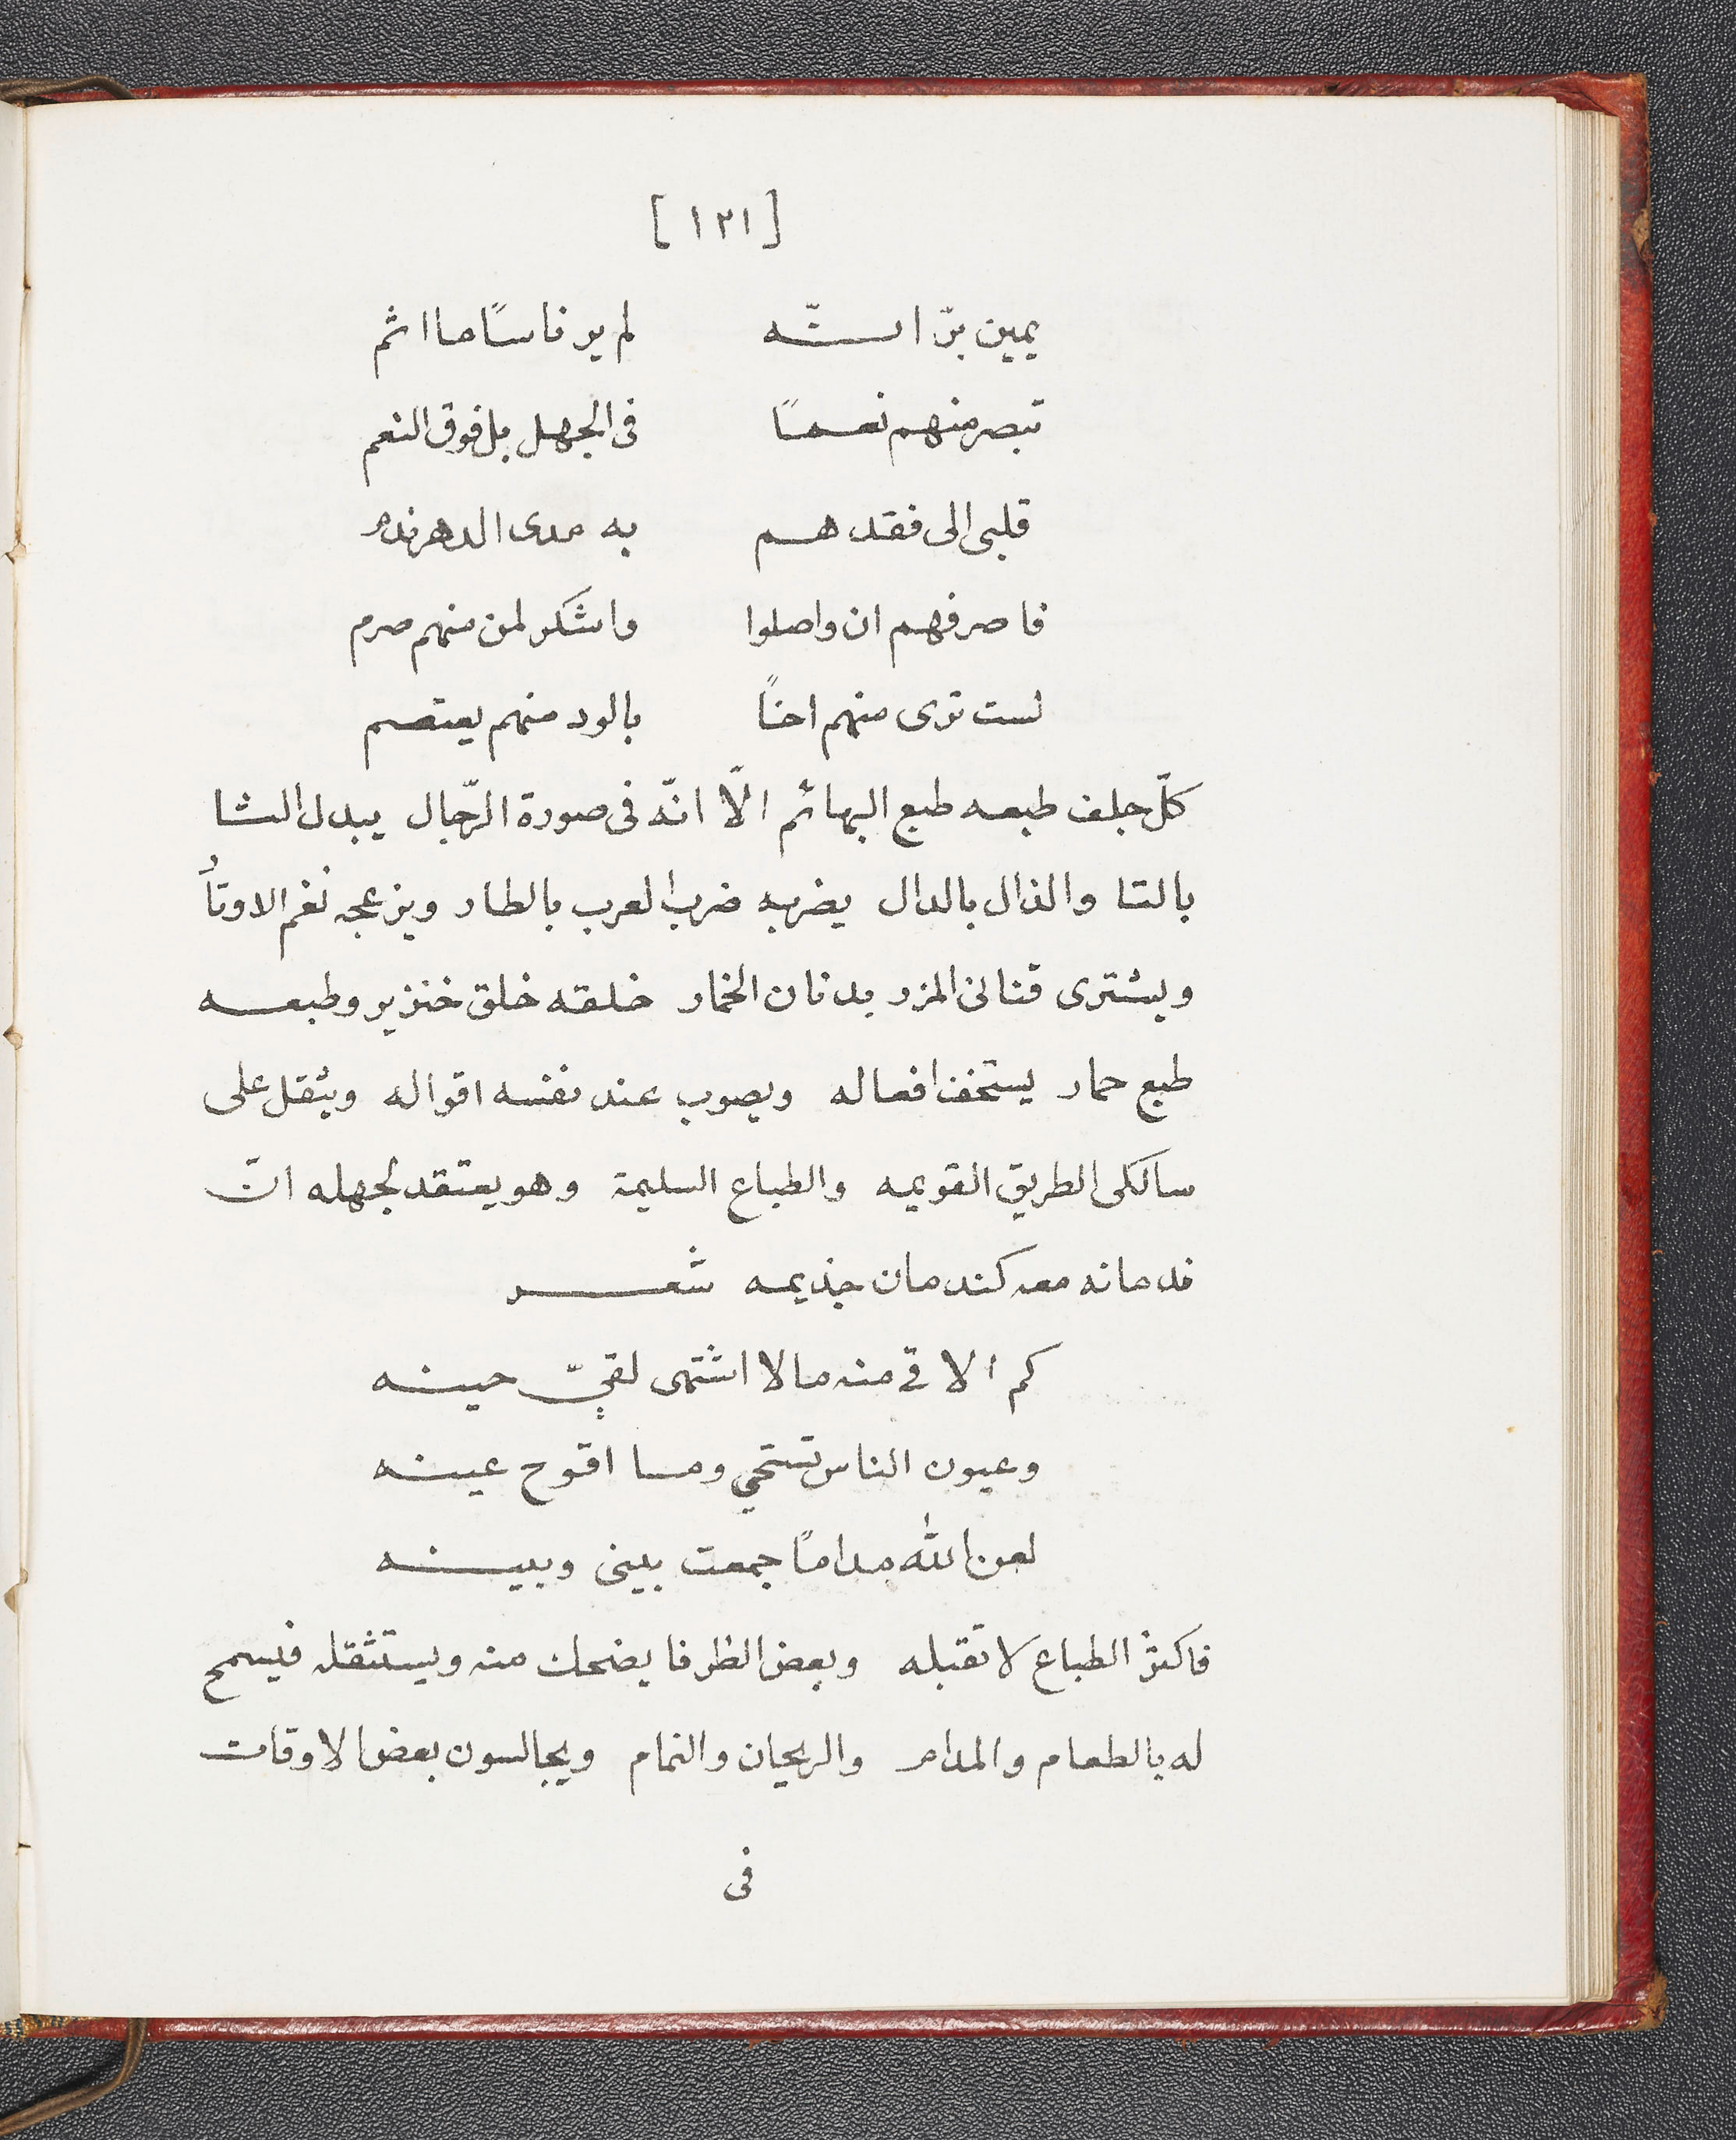 [١٢١]
يمين برّ انـــّـه لم ير ناسًا ما اثم
تبصر منهم نعمًا فى الجهل بل فوق النعم
قلبى الى فقدهم به مدى الدهر ندم
فاصرفهم ان واصلوا واشكر لمن منهم صرم
لست ترى منهم اخًا بالود منهم يعتصم
كلّ جلف طبعه طبع البهائم الّا انّه فى صورة الرّجال يبدل الثا
بالتا والذال بالدال يضربه ضرب العرب بالطار ويزعجه نغم الاوتاُ
ويشترى قنانى المزر بدنان الخمار خلقه خلق خنزير وطبعه
طبع حمار يستخف افعاله ويصوب عند نفسه اقواله ويثقل على
سالكى الطريق القويمه والطباع السليمة وهو يعتقد لجهله انّ
ندمانه معه كندمان جذيمه شعر
كم الاقى منه مالا اشتهى لقيّ حينه
وعيون الناس تستحيي وما اقوح عينه
لعن الله مدامًا جمعت بينى وبينه
فاكثر الطباع لا تقبله وبعض الظرفا يضحك منه ويستثقله فيسمح
له بالطعام والمدام والريحان والنمام ويجالسون بعض الاوقات
فى